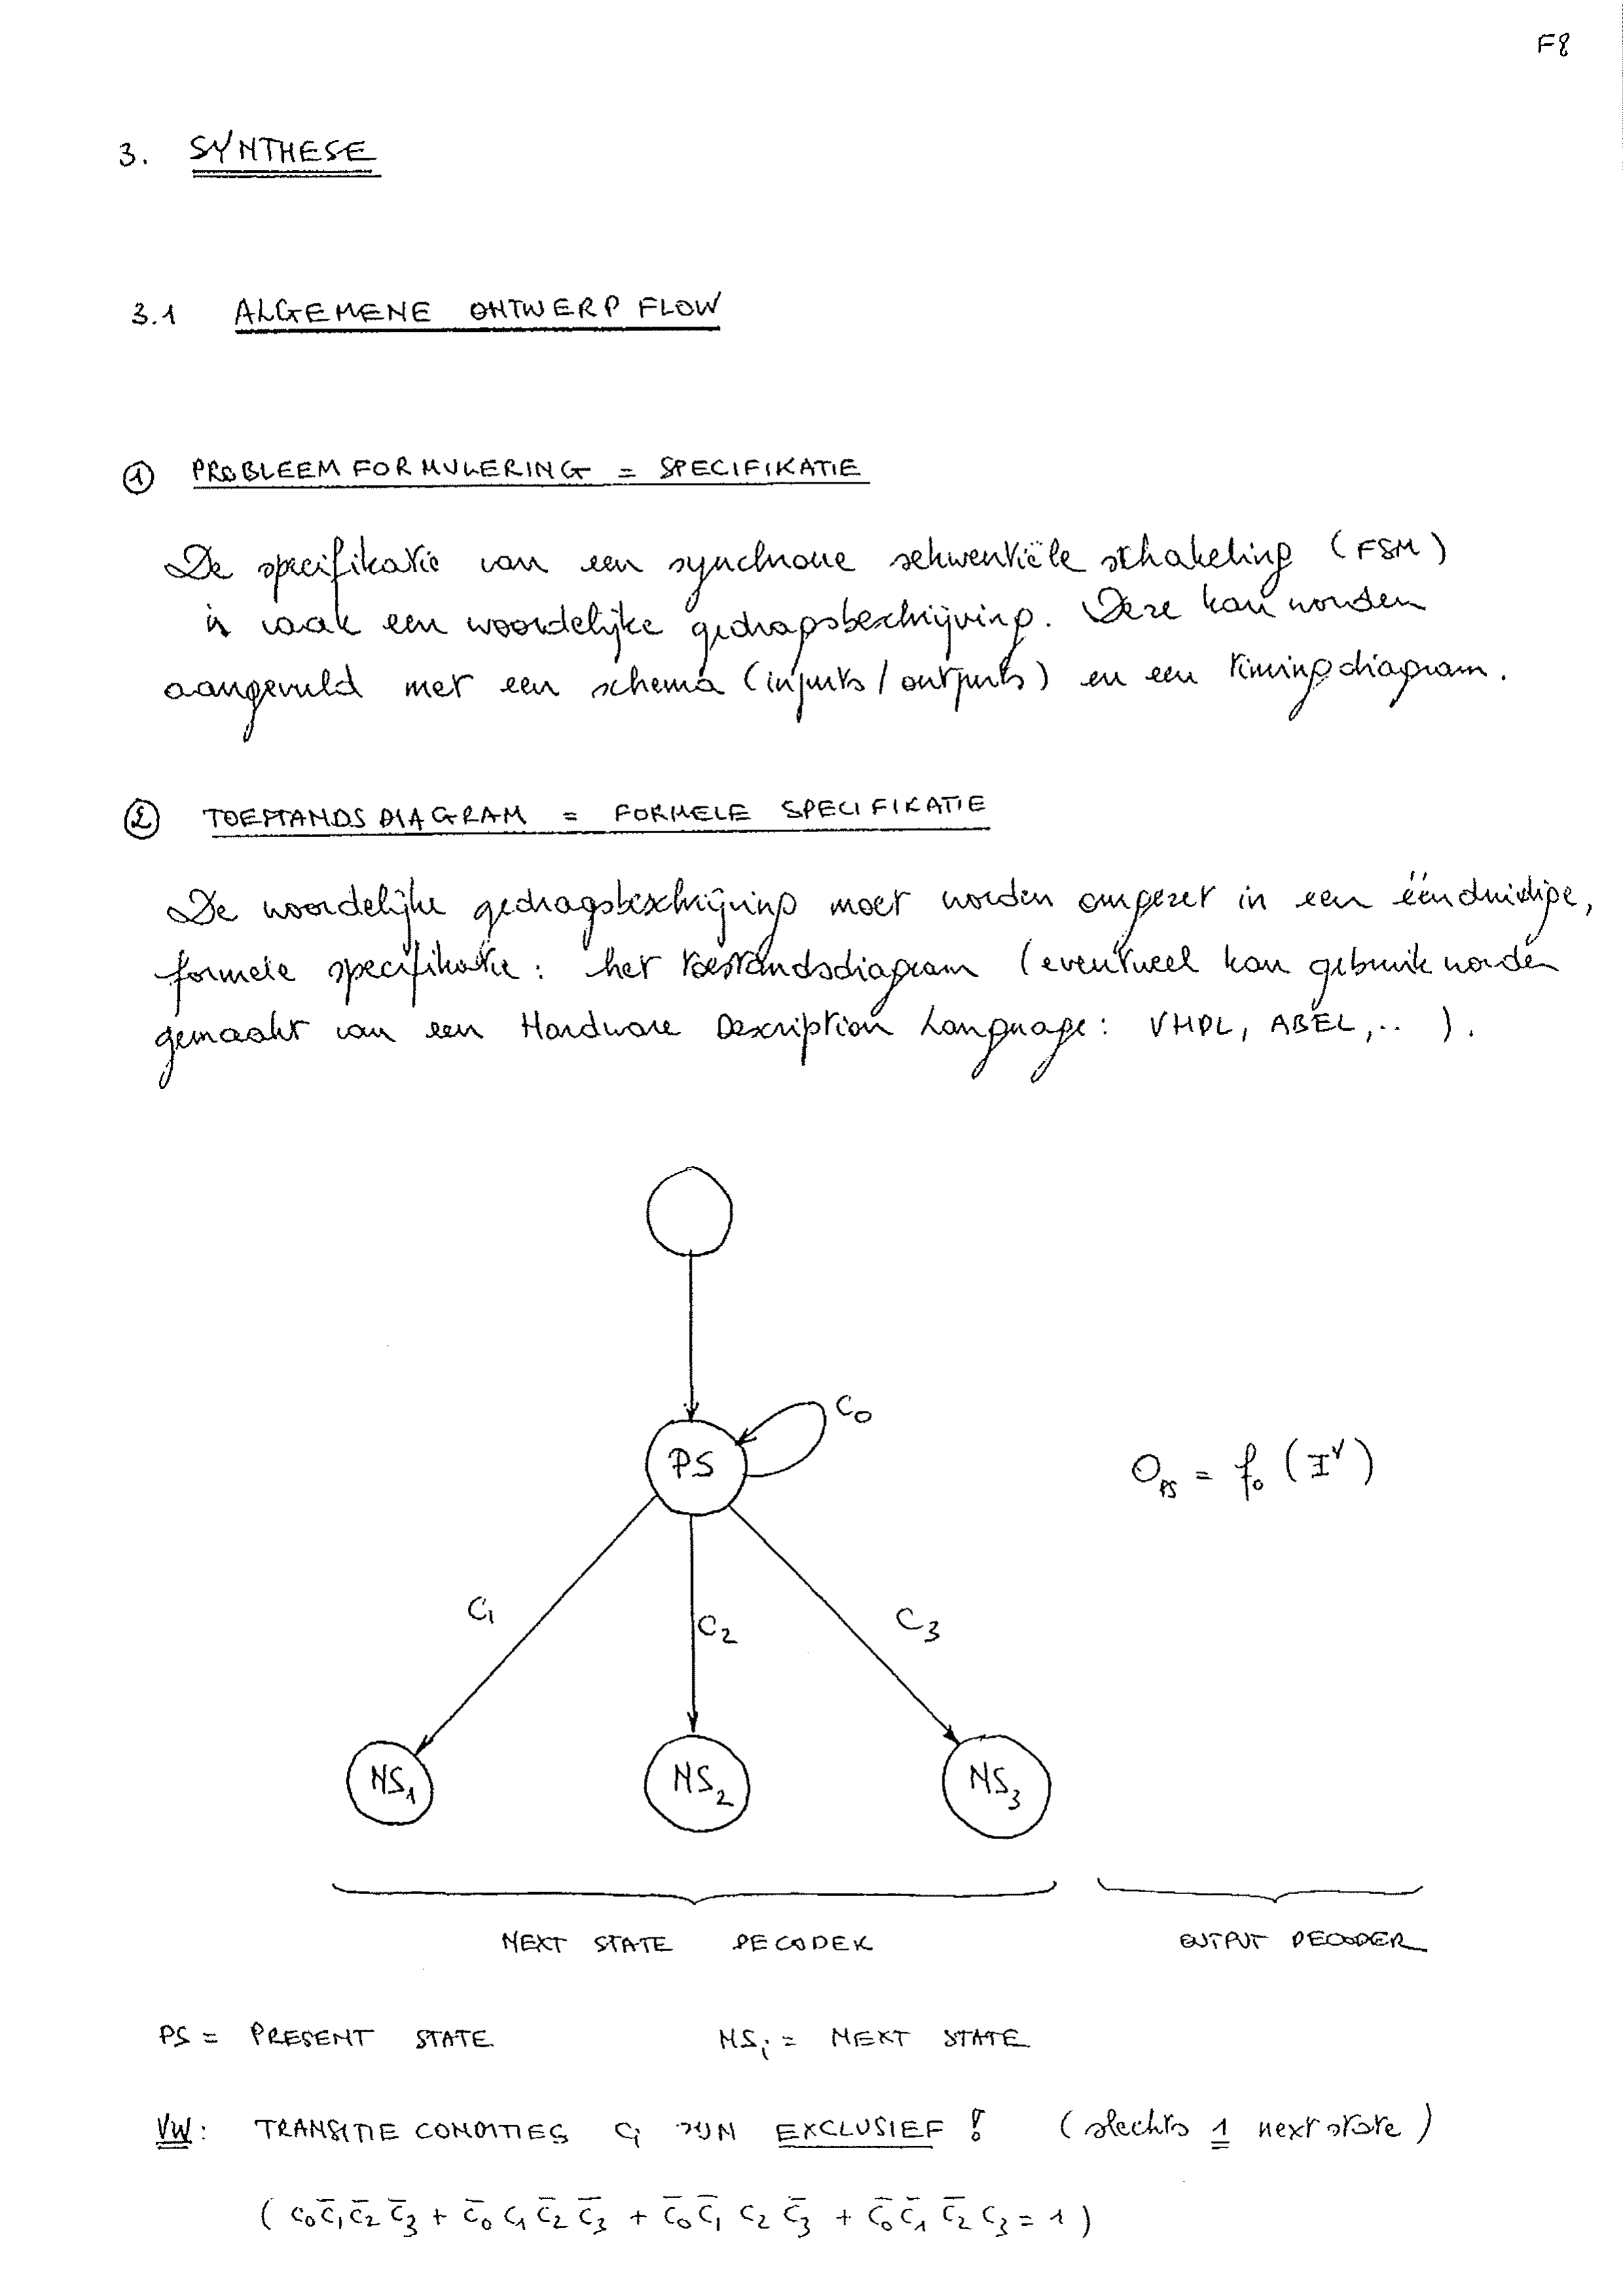 F8
3. SYNTHESE
3.1 ALGEMENE ONTWERP FLOW
① PROBLEEM FORMULERING = SPECIFIKATIE
De specifikatie van een synchrone sekwentiële schakeling (FSM)
is vaak een woordelijke gedragsbeschrijving. Deze kan worden
aangevuld met een schema (inputs / outputs) en een timing diagram.
② TOESTANDSDIAGRAM = FORMELE SPECIFIKATIE
De woordelijke gedragsbeschrijving moet worden omgezet in een ééndnuidige,
formele specifikatie : het toestandsdiagram (eventueel kan gebruik worden
gemaakt van een Hardware Description Language : VHDL, ABEL, .. ).
C₀
PS
O_PS = f₀ (I^v)
C₁
C₂
C₃
NS₁ NS₂ NS₃
NEXT STATE DECODER OUTPUT DECODER
PS = PRESENT STATE NSᵢ = NEXT STATE
VW : TRANSITIE CONDITIES Cᵢ ZIJN EXCLUSIEF ! (slechts 1 next state)
( c₀c̄₁c̄₂c̄₃ + c̄₀c₁c̄₂c̄₃ + c̄₀c̄₁c₂c̄₃ + c̄₀c̄₁c̄₂c₃ = 1 )